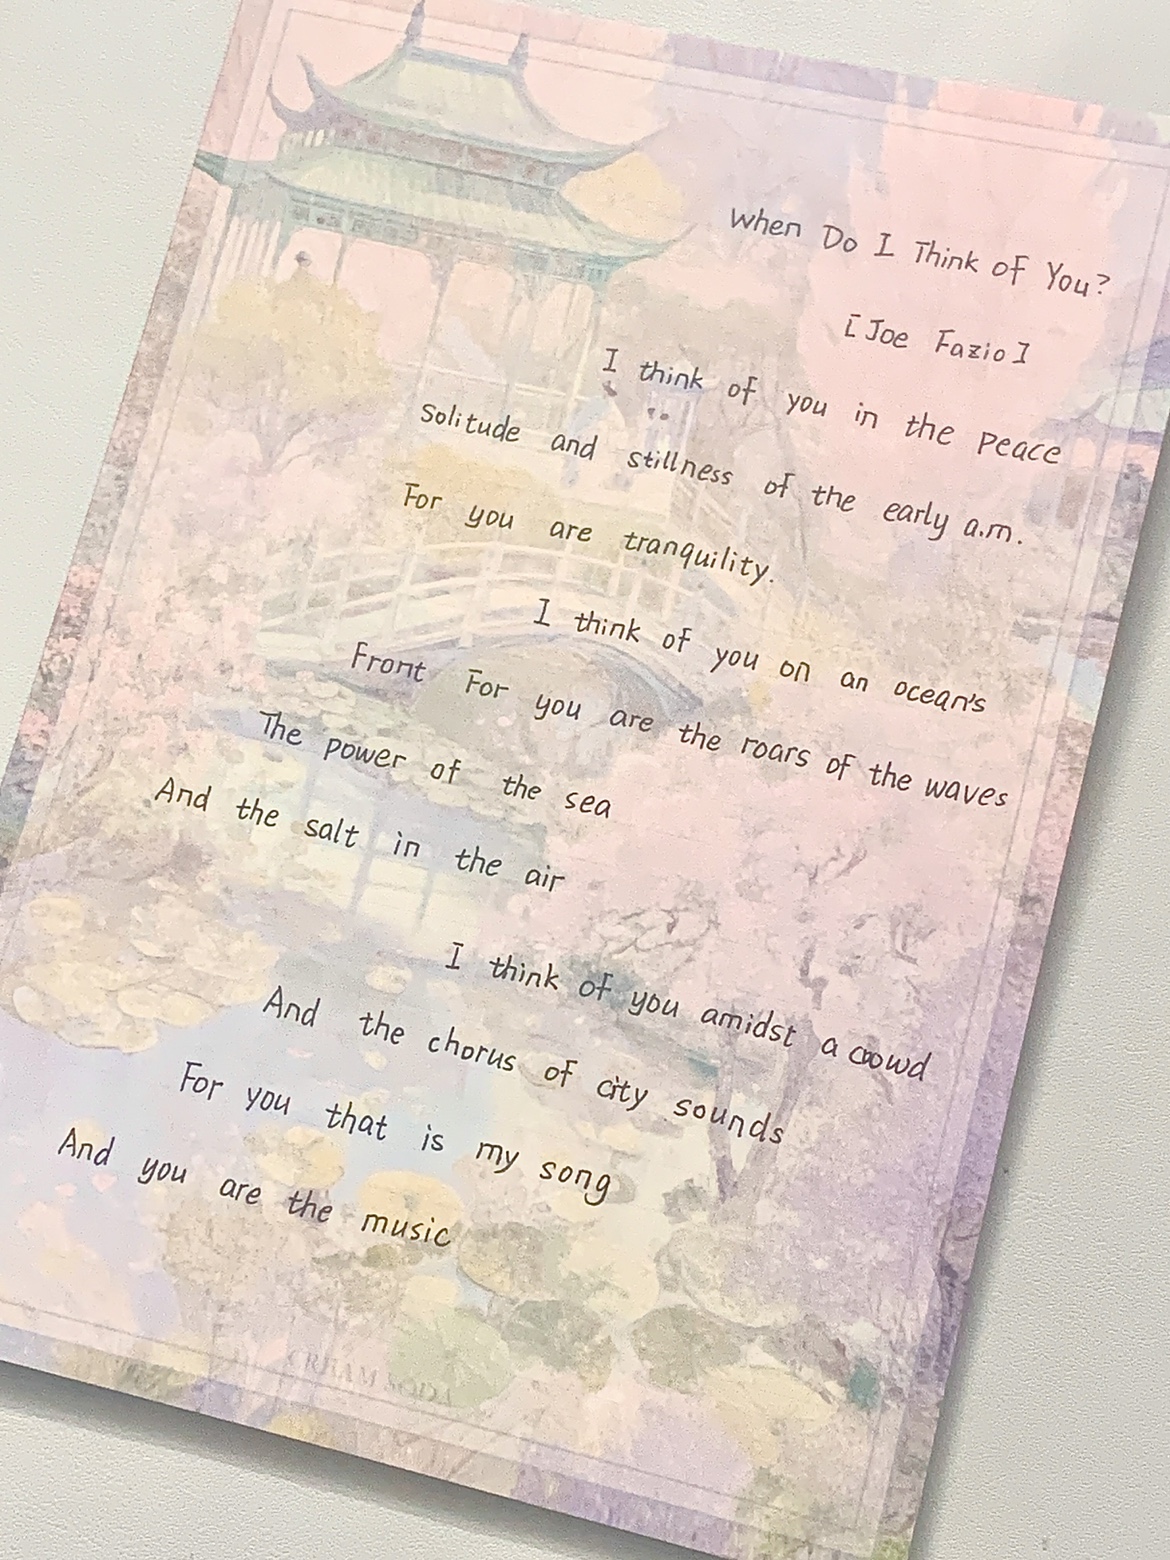 When Do I Think of You?
[Joe Fazio]
I think of you in the peace
Solitude and stillness of the early a.m.
For you are tranquility.
I think of you on an ocean's
Front For you are the roars of the waves
The power of the sea
And the salt in the air
I think of you amidst a crowd
And the chorus of city sounds
For you that is my song
And you are the music
CREAM SODA